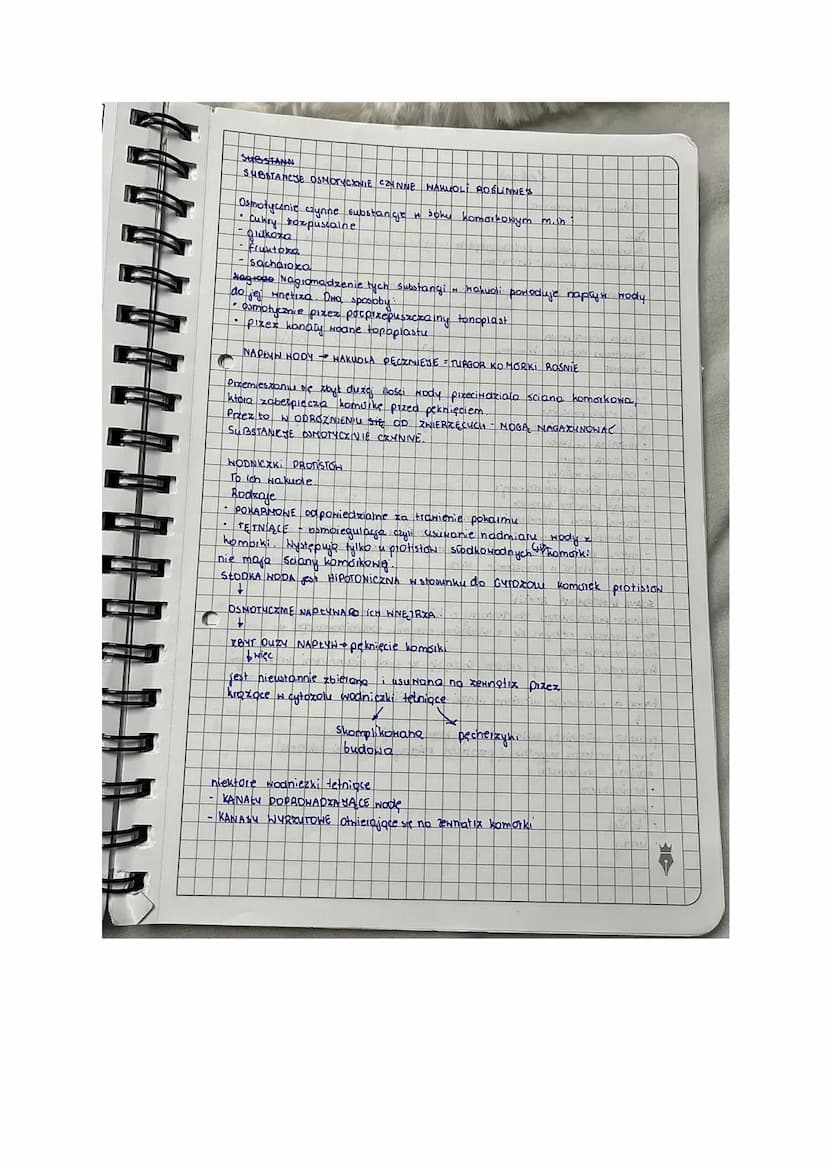 SUBSTANN
SUBSTANCJE OSMOTYCZNIE CZYNNE WAKUOLI ROŚLINNEJ
Osmotycznie czynne substancje w soku komórkowym m.in:
• cukry rozpuszczalne
- glukoza
- fruktoza
- sacharoza
Nagromadzenie tych substancji w wakuoli powoduje napływ wody
do jej wnętrza. Dwa sposoby:
• osmotycznie przez półprzepuszczalny tonoplast
• przez kanały wodne tonoplastu
NAPŁYW WODY → WAKUOLA PĘCZNIEJE = TURGOR KOMÓRKI ROŚNIE
Przemieszaniu się zbyt dużej ilości wody przeciwdziała ściana komórkowa,
która zabezpiecza komórkę przed pęknięciem.
Przez to W ODRÓŻNIENIU SIĘ OD ZWIERZĘCYCH - MOGĄ MAGAZYNOWAĆ
SUBSTANCJE OSMOTYCZNIE CZYNNE.
WODNICZKI PROTISTÓW
To ich wakuole
Rodzaje
• POKARMOWE odpowiedzialne za trawienie pokarmu
• TĘTNIĄCE - osmoregulacja czyli usuwanie nadmiaru wody z
komórki. Występują tylko u protistów słodkowodnych komórki
nie mają ściany komórkowej.
SŁODKA WODA jest HIPOTONICZNA w stosunku do CYTOZOLU komórek protistów
↓
OSMOTYCZNIE NAPŁYWA DO ICH WNĘTRZA.
↓
ZBYT DUŻY NAPŁYW → pęknięcie komórki
↓ więc
jest nieustannie zbierana i usuwana na zewnątrz przez
krążące w cytozolu wodniczki tętniące
skomplikowana pęcherzyki
budowa
niektóre wodniczki tętniące
- KANAŁY DOPROWADZAJĄCE wodę
- KANAŁY WYRZUTOWE otwierające się na zewnątrz komórki